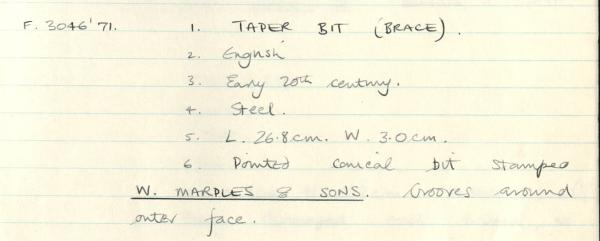 F. 3046'71. 1. TAPER BIT (BRACE).
2. English
3. Early 20th century.
4. Steel.
5. L. 26.8cm. W. 3.0cm.
6. Pointed conical bit stamped
W. MARPLES & SONS. Grooves around
outer face.